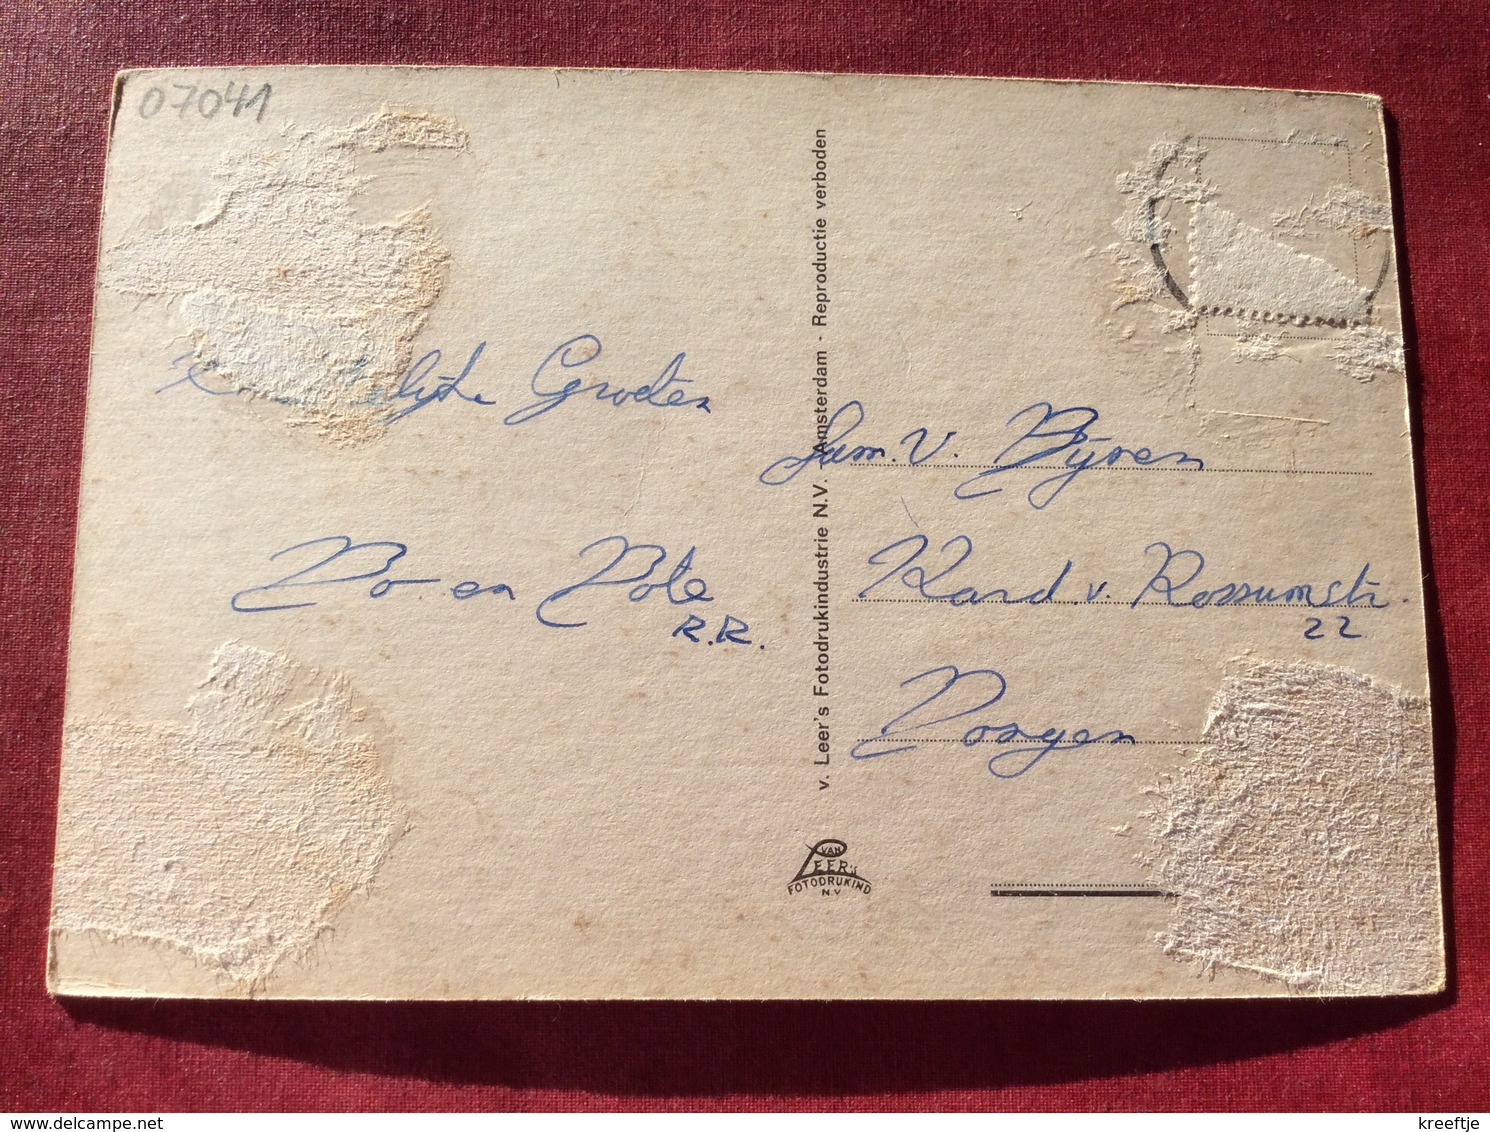 07041
Groeten
Do en Dole
R.R.
v. Leer's Fotodrukindustrie N.V. Amsterdam - Reproductie verboden
Fam. v. Byren
Kard. v. Rossumstr.
22
Dongen
VAN
LEER'S
FOTODRUKIND
N.V
kreeftje